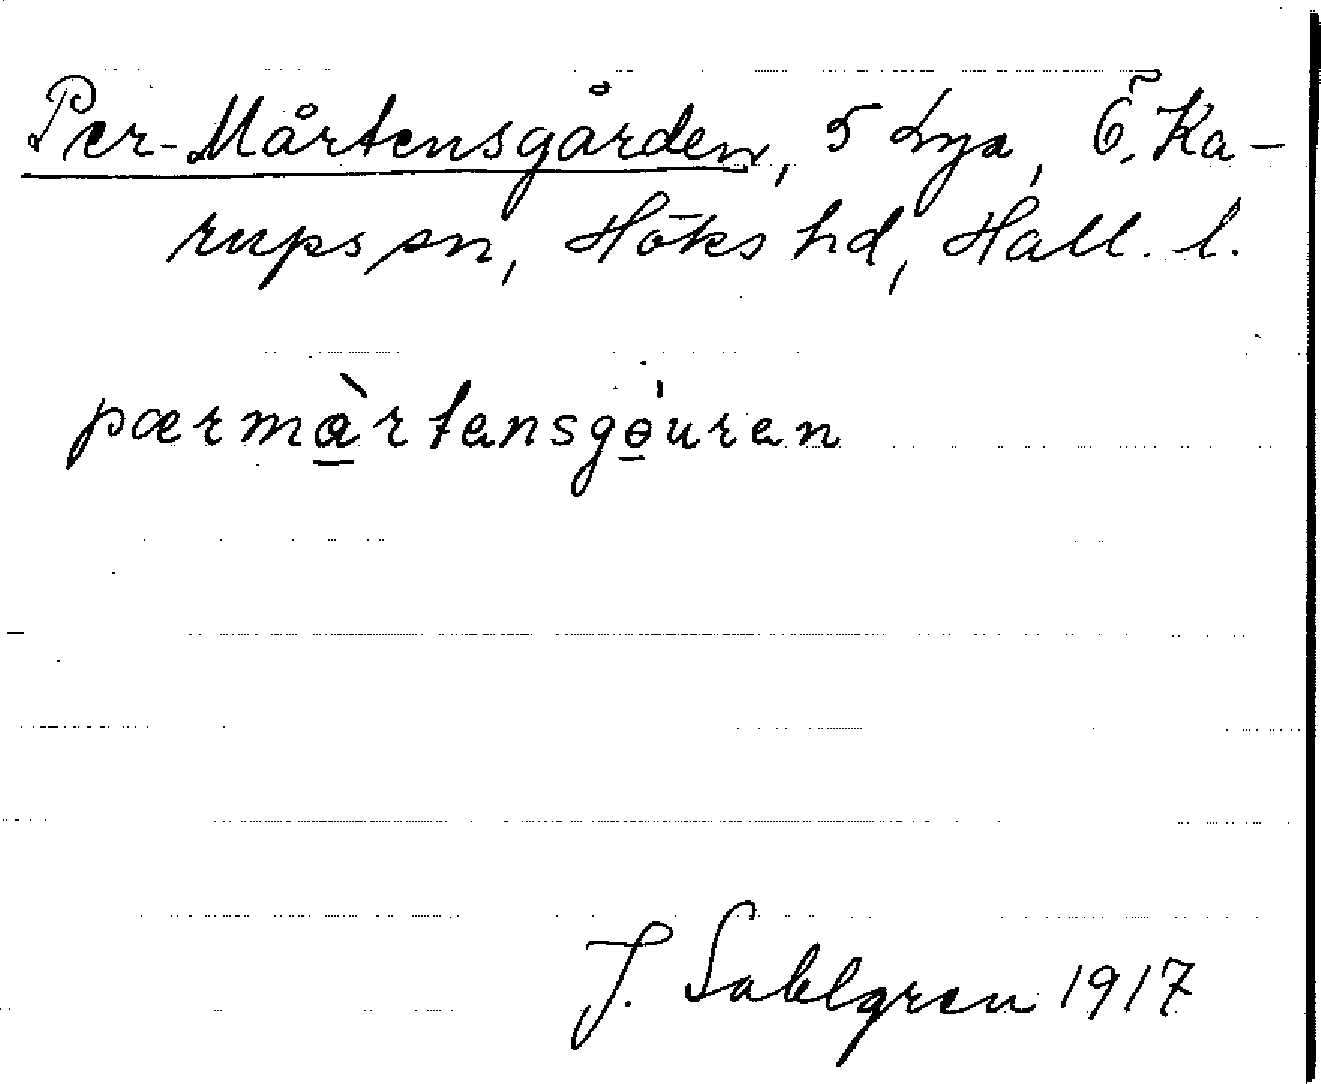 Per-Mårtensgården, 5 Lya, Ö. Ka-
rups sn, Höks hd, Hall. l.
pærmàrtensgo̱uren
J. Sahlgren 1917